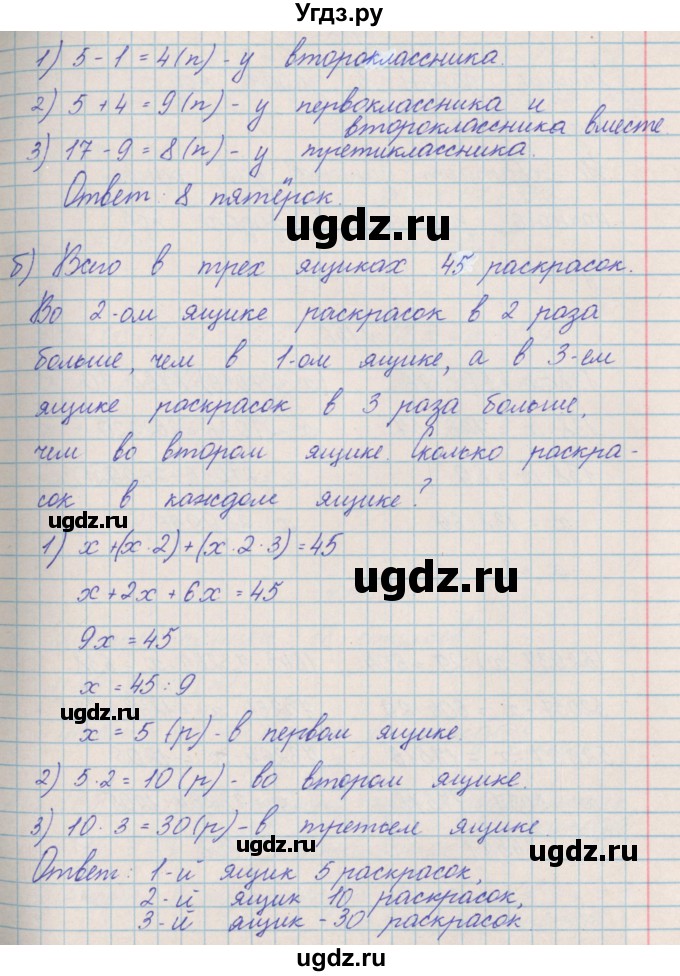 Угдз.ру
1) 5 - 1 = 4 (п) - у второклассника.
2) 5 + 4 = 9 (п) - у первоклассника и
второклассника вместе
3) 17 - 9 = 8 (п) - у третиклассника.
Ответ: 8 пятёрок.
ugdz.ru
б) Всего в трех ящиках 45 раскрасок.
Во 2-ом ящике раскрасок в 2 раза
больше, чем в 1-ом ящике, а в 3-ем
ящике раскрасок в 3 раза больше,
чем во втором ящике. Сколько раскра-
сок в каждом ящике?
ugdz.ru
1) х + (х · 2) + (х · 2 · 3) = 45
ugdz.ru
х + 2х + 6х = 45
9х = 45
х = 45 : 9
ugdz.ru
х = 5 (р) - в первом ящике.
2) 5 · 2 = 10 (р) - во втором ящике.
3) 10 · 3 = 30 (р) - в третьем ящике.
ugdz.ru
Ответ: 1-й ящик 5 раскрасок,
2-й ящик 10 раскрасок,
3-й ящик - 30 раскрасок
ugdz.ru